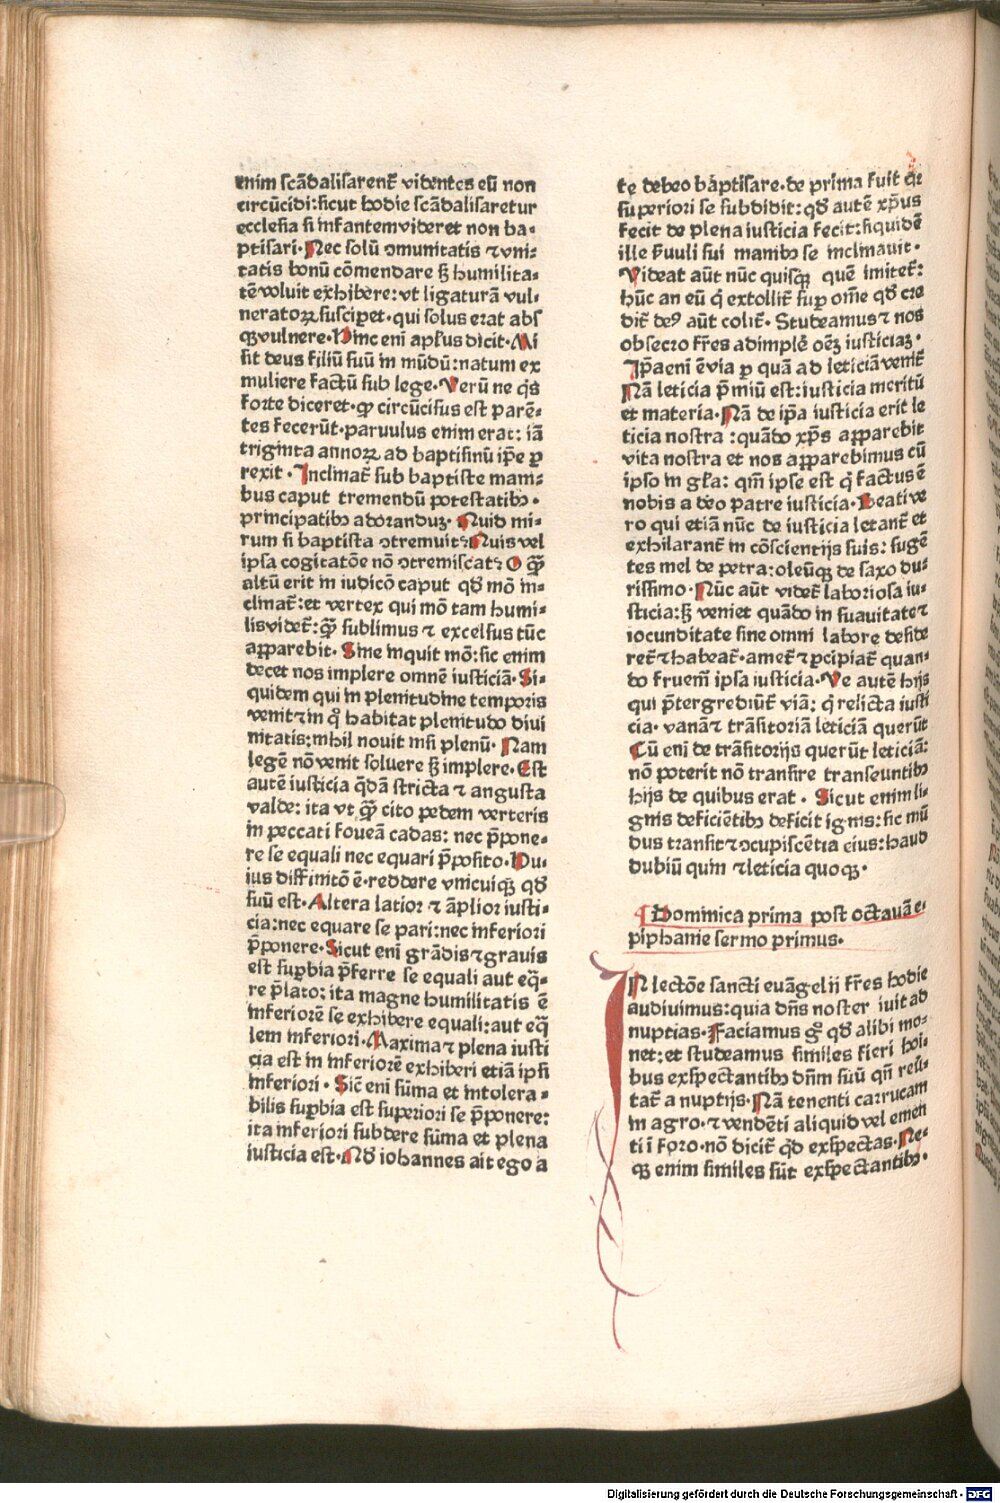 enim scādalisarent̄ videntes eū non
circūcidi: sicut hodie scādalisaretur
ecclesia si infantem videret non ba⸗
ptisari. Nec solū ꝯmunitatis ⁊ vni⸗
tatis bonū cōmendare sꝫ humilita⸗
tē voluit exhibere: vt ligaturā vul⸗
neratoꝝ susciperet. qui solus erat absꝙ
vulnere. Hinc eni apl̄us dicit. Mi
sit deus filiū suū in mūdū: natum ex
muliere factū sub lege. Verū ne q̄s
forte diceret. ꝙ circūcisus est parē⸗
tes fecerūt. paruulus enim erat: iā
triginta annoꝝ ad baptismū ip̄e ꝑ
rexit. Inclinat̄ sub baptiste mani⸗
bus caput tremendū potestatibꝫ.
principatibꝫ adoranduꝫ. Quid mi⸗
rum si baptista ꝯtremuit? Quis vel
ipsa cogitatōe nō ꝯtremiscat? O ꝙ̄
altū erit in iudicō caput qd̄ mō in⸗
clinat̄: et vertex qui mō tam humi⸗
lis videt̄: ꝙ̄ sublimus ⁊ excelsus tūc
apparebit. Sine inquit mō: sic enim
decet nos implere omnē iusticiā. Si⸗
quidem qui in plenitudine temporis
venit ⁊ in qͦ habitat plenitudo diui
nitatis: nihil nouit nisi plenū. Nam
legē nō venit soluere sꝫ implere. Est
autē iusticia q̄dā stricta ⁊ angusta
valde: ita vt ꝙ̄ cito pedem verteris
in peccati foueā cadas: nec p̄pone⸗
re se equali nec equari p̄posito. Hu⸗
ius diffinitō ē. reddere vnicuiꝙ̄ qd̄
suū est. Altera latior ⁊ āplior iusti⸗
cia: nec equare se pari: nec inferiori
p̄ponere. Sicut eni grādis ⁊ grauis
est suꝑbia p̄ferre se equali aut eq̄⸗
re p̄lato: ita magne humilitatis ē
inferiorē se exhibere equali: aut eq̄
lem inferiori. Maxima ⁊ plena iusti
cia est in inferiorē exhiberi etiā ipsi
inferiori. Sic̄ eni sūma et intolera⸗
bilis suꝑbia est superiori se p̄ponere:
ita inferiori subdere sūma et plena
iusticia est. Nd̄ iohannes ait ego a
te debeo baptisare. de prima fuit qꝛ
superiori se subdidit: qd̄ autē xp̄us
fecit de plena iusticia fecit: siquidē
ille ẜuuli sui manibꝫ se inclinauit.
Videat aūt nūc quisꝙ̄ quē imitet̄:
hūc an eū q̄ extollit̄ suꝑ om̄e qd̄ cre
dit̄ deꝰ aūt colit̄. Studeamus ⁊ nos
obsecro fr̄es adimplē oēꝫ iusticiaꝫ.
Ip̄a eni ē via ꝑ quā ad leticiā venit̄
Nā leticia p̄miū est: iusticia meritū
et materia. Nā de ip̄a iusticia erit le
ticia nostra: quādo xp̄s apparebit
vita nostra et nos apparebimus cū
ipso in gl̄a: qm̄ ipse est q̄ factus ē
nobis a deo patre iusticia. Beati ve
ro qui etiā nūc de iusticia letant̄ et
exhilarant̄ in cōscientijs suis: sugē⸗
tes mel de petra: oleūꝙ de saxo du⸗
rissimo. Nūc aūt videt̄ laboriosa iu⸗
sticia: sꝫ veniet quādo in suauitate ⁊
iocunditate sine omni labore deside
ret̄ ⁊ habeat̄. amet̄ ⁊ ꝑcipiat̄ quan⸗
do fruem̄ ipsa iusticia. Ve autē hijs
qui p̄tergrediūt̄ viā: q̄ relicta iusti
cia. vanā ⁊ trāsitoriā leticiā querūt
Cū eni de trāsitorijs querūt leticiā:
nō poterit nō transire transeuntibꝫ
hijs de quibus erat. Sicut enim li⸗
gnis deficiētibꝫ deficit ignis: sic mū
dus transit ⁊ ꝯcupiscētia eius: haud
dubiū quin ⁊ leticia quoꝙ.
¶ Dominica prima post octauā e⸗
piphanie sermo primus.
IN lectōe sancti euāgelij fr̄es hodie
audiuimus: quia dn̄s noster iuit ad
nuptias. Faciamus gͦ qd̄ alibi mo⸗
net: et studeamus similes fieri hoī⸗
bus exspectantibꝫ dn̄m suū qn̄ reū⸗
tat̄ a nuptijs. Nā tenenti carrucam
in agro. ⁊ vendēti aliquid vel emen
ti ī foro. nō dicit̄ qd̄ exspectas. Ne⸗
ꝙ enim similes sūt exspectantibꝫ.
Digitalisierung gefördert durch die Deutsche Forschungsgemeinschaft - DFG